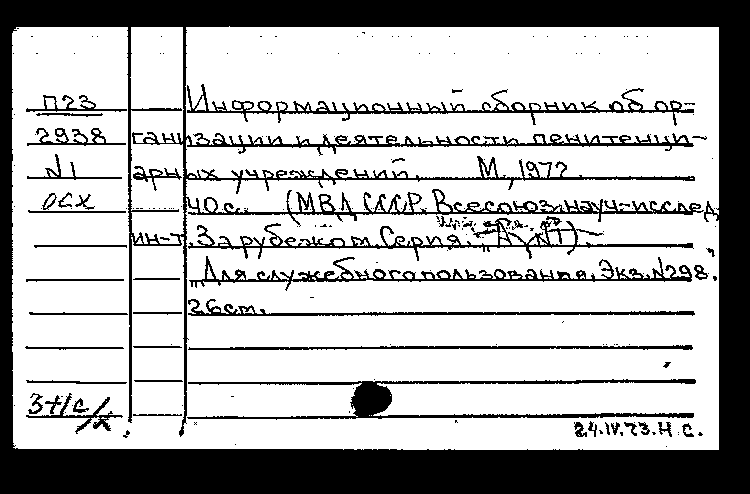 П23 Информационный сборник об ор-
2938 ганизации и деятельности пенитенци-
N1 арных учреждений. М., 1972.
ОСХ 40 с. (МВД СССР. Всесоюз. науч-исслед.
ин-т. За рубежом. Серия. "А", N1).
"Для служебного пользования. Экз. N298."
26 см.
3+1с/х
24.IV.73. Н С.